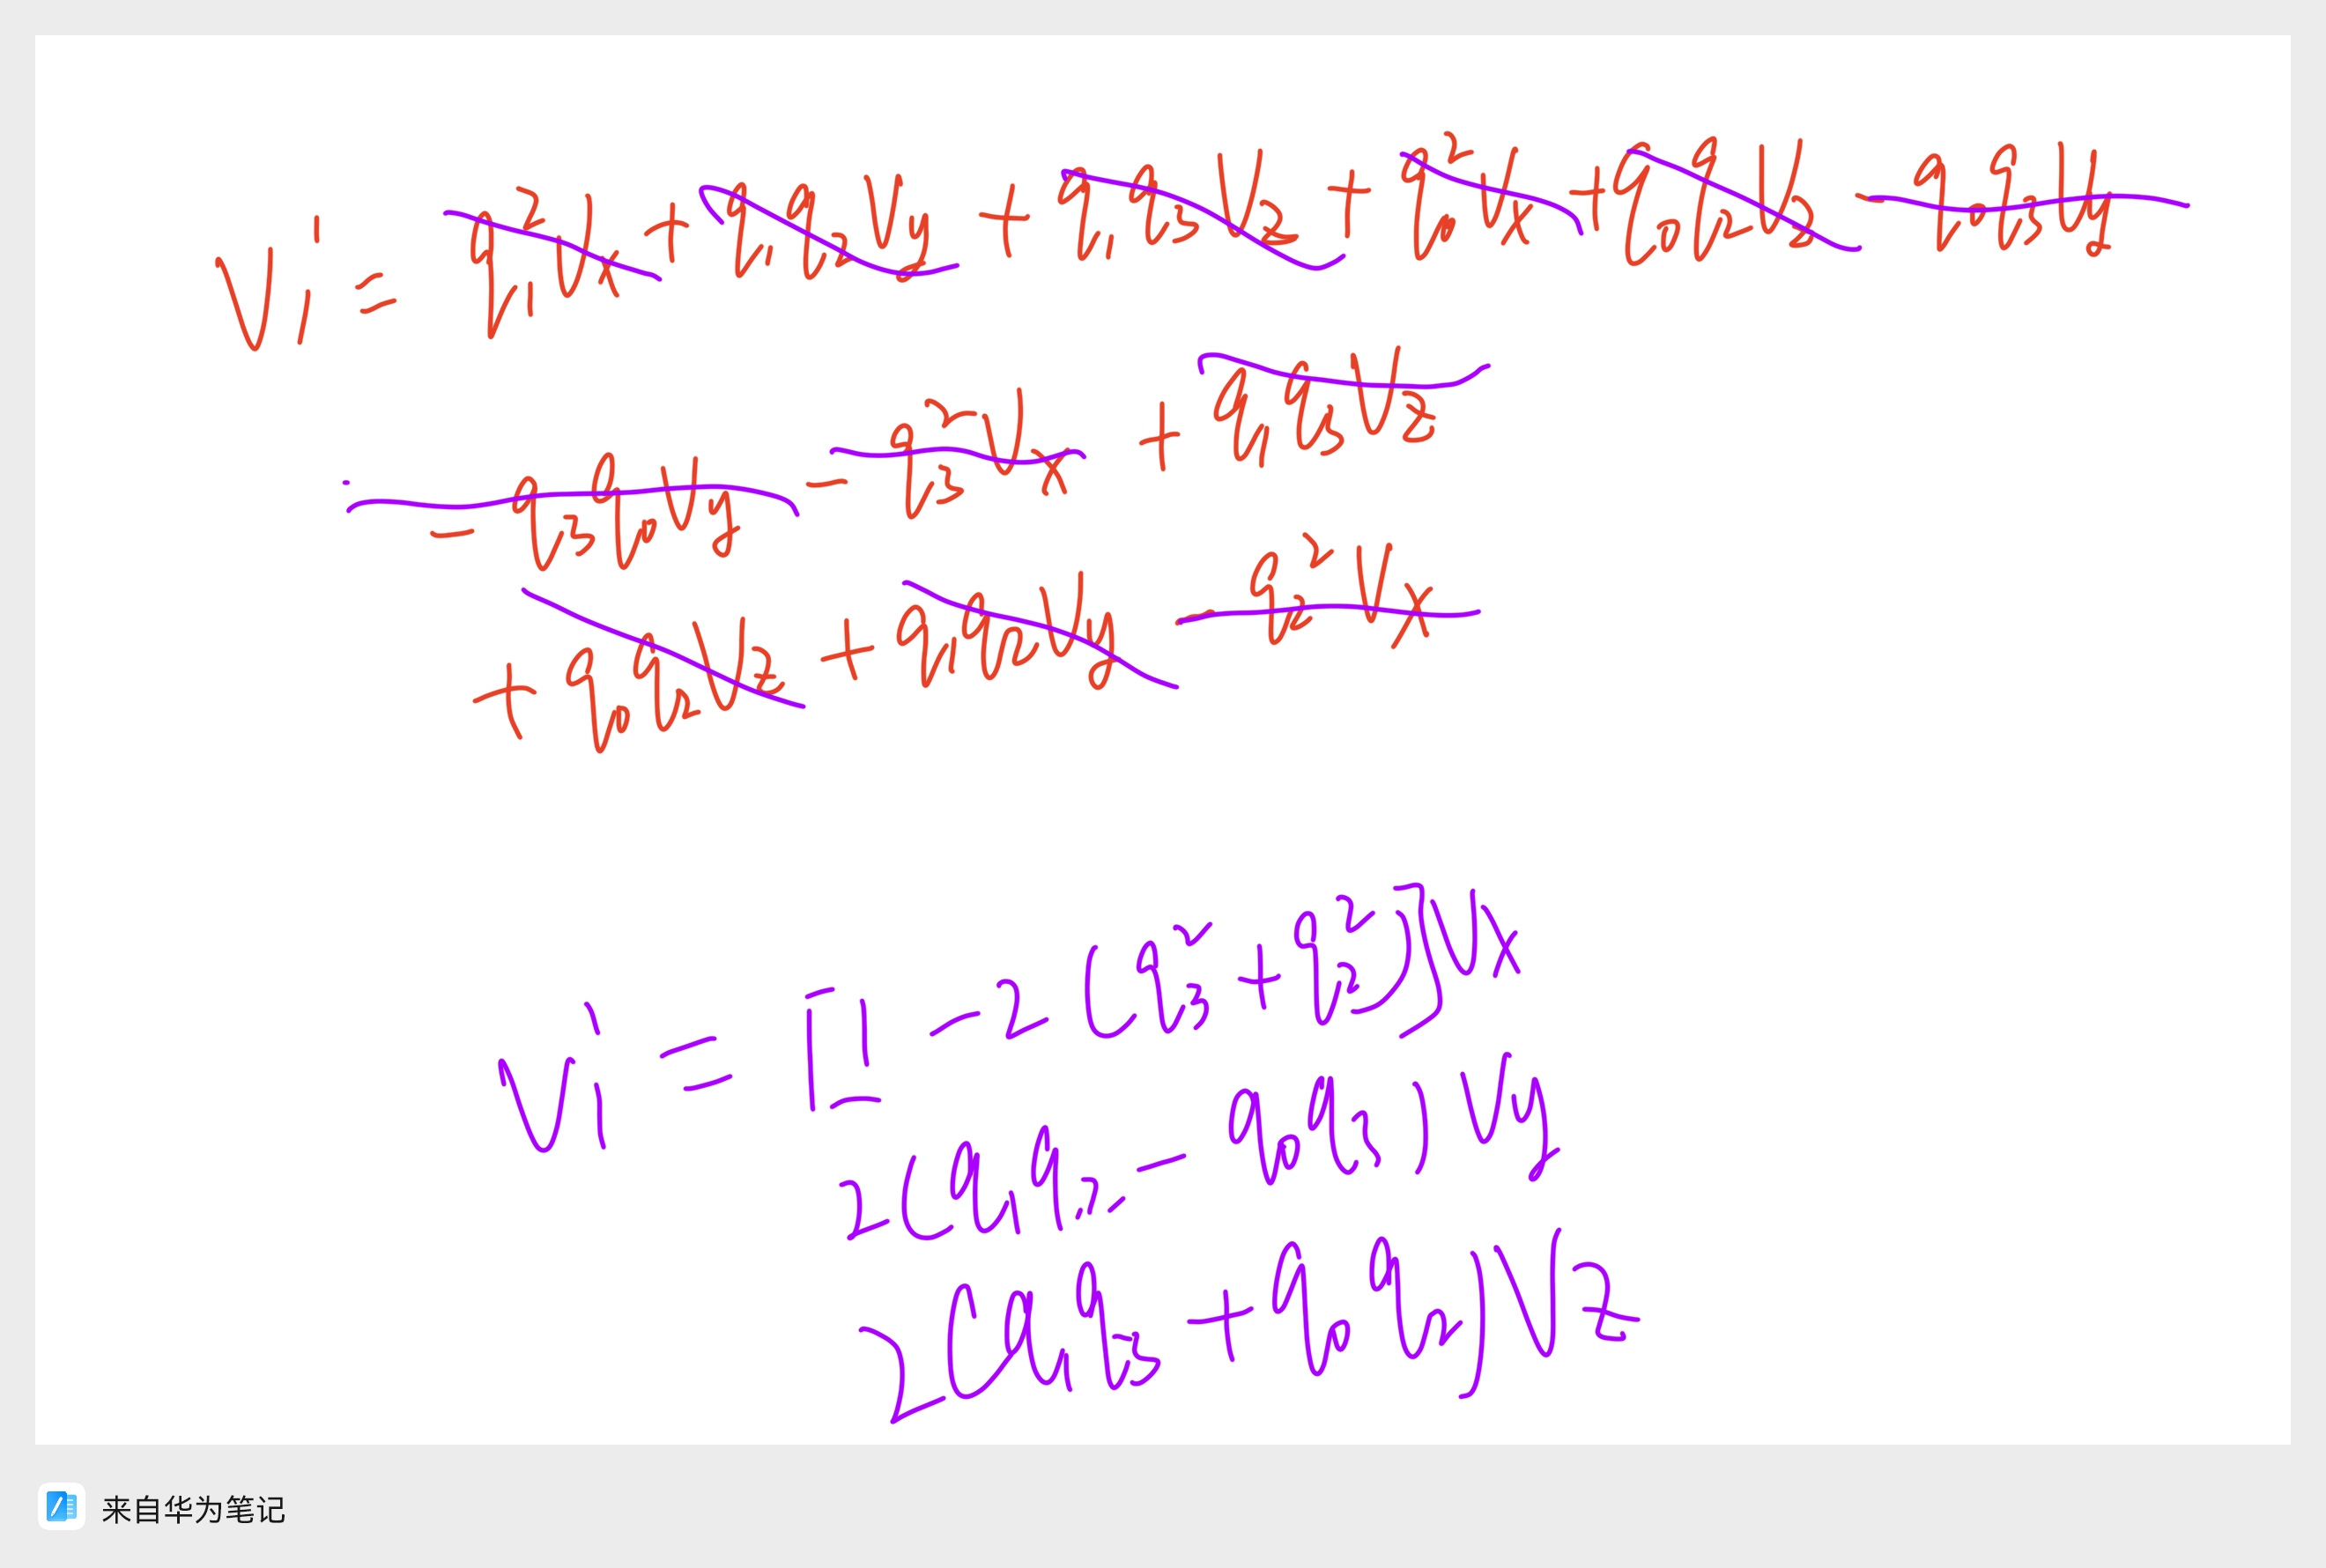 Vi = q₁²Vx + q₁q₂Vy + q₁q₃Vz + q₀²Vx + q₀q₂Vz - q₀q₃Vy
- q₃q₀Vy - q₃²Vx + q₁q₃Vz
+ q₀q₂Vz + q₁q₂Vy - q₂²Vx
Vi = [1 - 2(q₃² + q₂²)]Vx
2(q₁q₂ - q₀q₃)Vy
2(q₁q₃ + q₀q₂)Vz
来自华为笔记